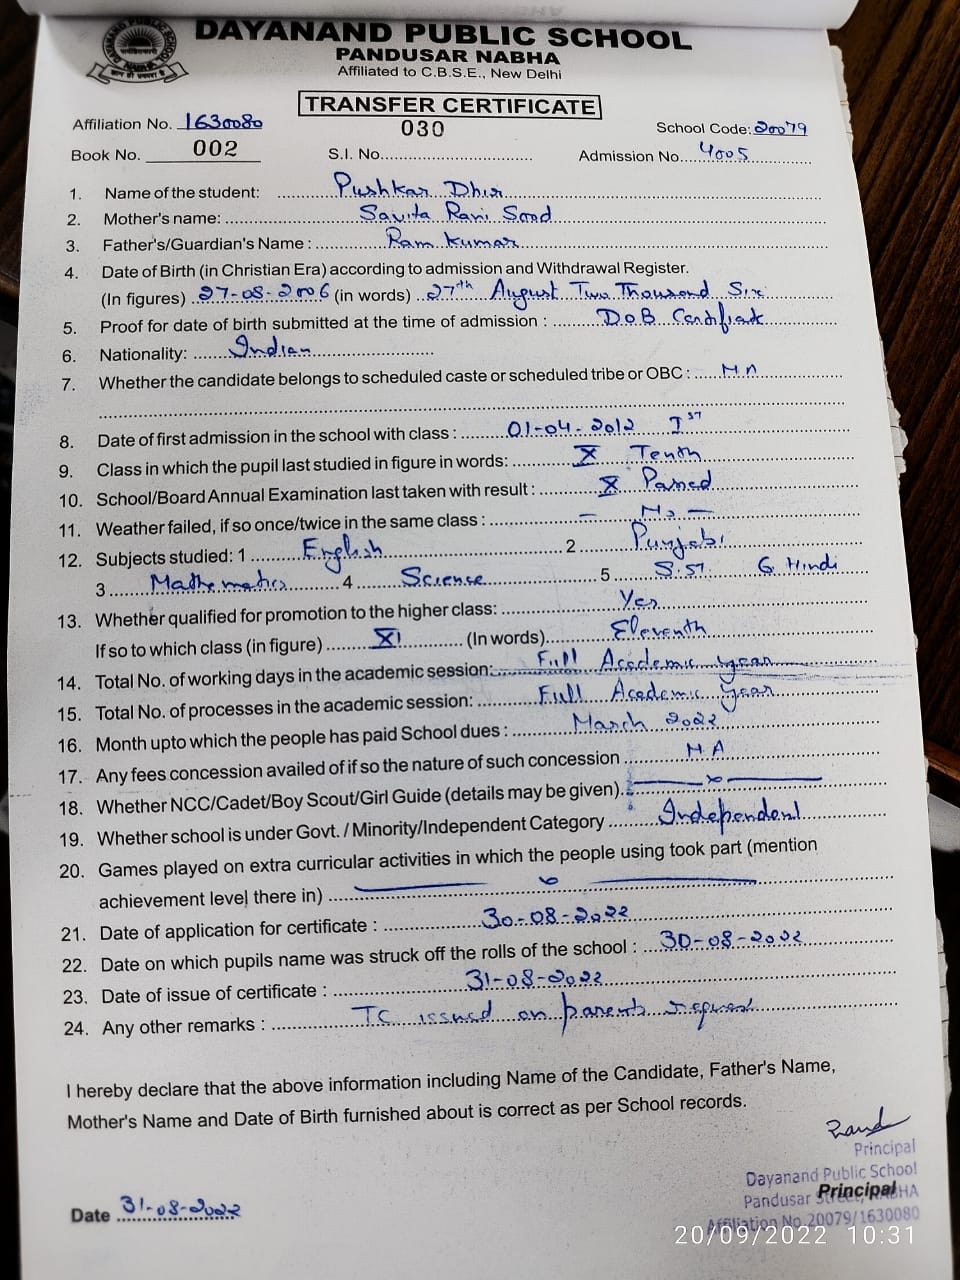 DAYANAND PUBLIC SCHOOL
PANDUSAR NABHA
Affiliated to C.B.S.E., New Delhi
TRANSFER CERTIFICATE
Affiliation No. 1630080 030 School Code: 20079
Book No. 002 S.I. No. Admission No. 4005
1. Name of the student: Pushkar Dhir
2. Mother's name: Savita Rani Sood
3. Father's/Guardian's Name: Ram Kumar
4. Date of Birth (in Christian Era) according to admission and Withdrawal Register.
(In figures) 27-08-2006 (in words) 27th August Two Thousand Six
5. Proof for date of birth submitted at the time of admission : DoB Certificate
6. Nationality: Indian
7. Whether the candidate belongs to scheduled caste or scheduled tribe or OBC : NA
8. Date of first admission in the school with class : 01-04-2012 Ist
9. Class in which the pupil last studied in figure in words: X Tenth
10. School/Board Annual Examination last taken with result : X Passed
11. Weather failed, if so once/twice in the same class : — No —
12. Subjects studied: 1 English 2 Punjabi
3 Mathematics 4 Science 5 S.ST 6 Hindi
13. Whether qualified for promotion to the higher class: Yes
If so to which class (in figure) XI (In words) Eleventh
14. Total No. of working days in the academic session: Full Academic year
15. Total No. of processes in the academic session: Full Academic year
16. Month upto which the people has paid School dues : March 2022
17. Any fees concession availed of if so the nature of such concession NA
18. Whether NCC/Cadet/Boy Scout/Girl Guide (details may be given).
19. Whether school is under Govt. / Minority/Independent Category Independent
20. Games played on extra curricular activities in which the people using took part (mention
achievement level there in)
21. Date of application for certificate : 30-08-2022
22. Date on which pupils name was struck off the rolls of the school : 30-08-2022
23. Date of issue of certificate : 31-08-2022
24. Any other remarks : TC issued on parents request
I hereby declare that the above information including Name of the Candidate, Father's Name,
Mother's Name and Date of Birth furnished about is correct as per School records.
Principal
Dayanand Public School
Pandusar Street, NABHA
Principal
Affiliation No. 20079/1630080
Date 31-08-2022
20/09/2022 10:31